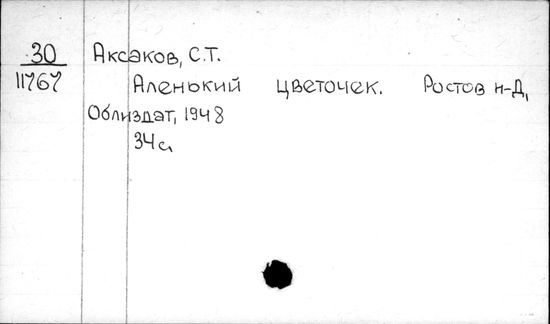 30 Аксаков, С.Т.
11767 Аленький цветочек. Ростов н-Д,
Облиздат, 1948
34с.